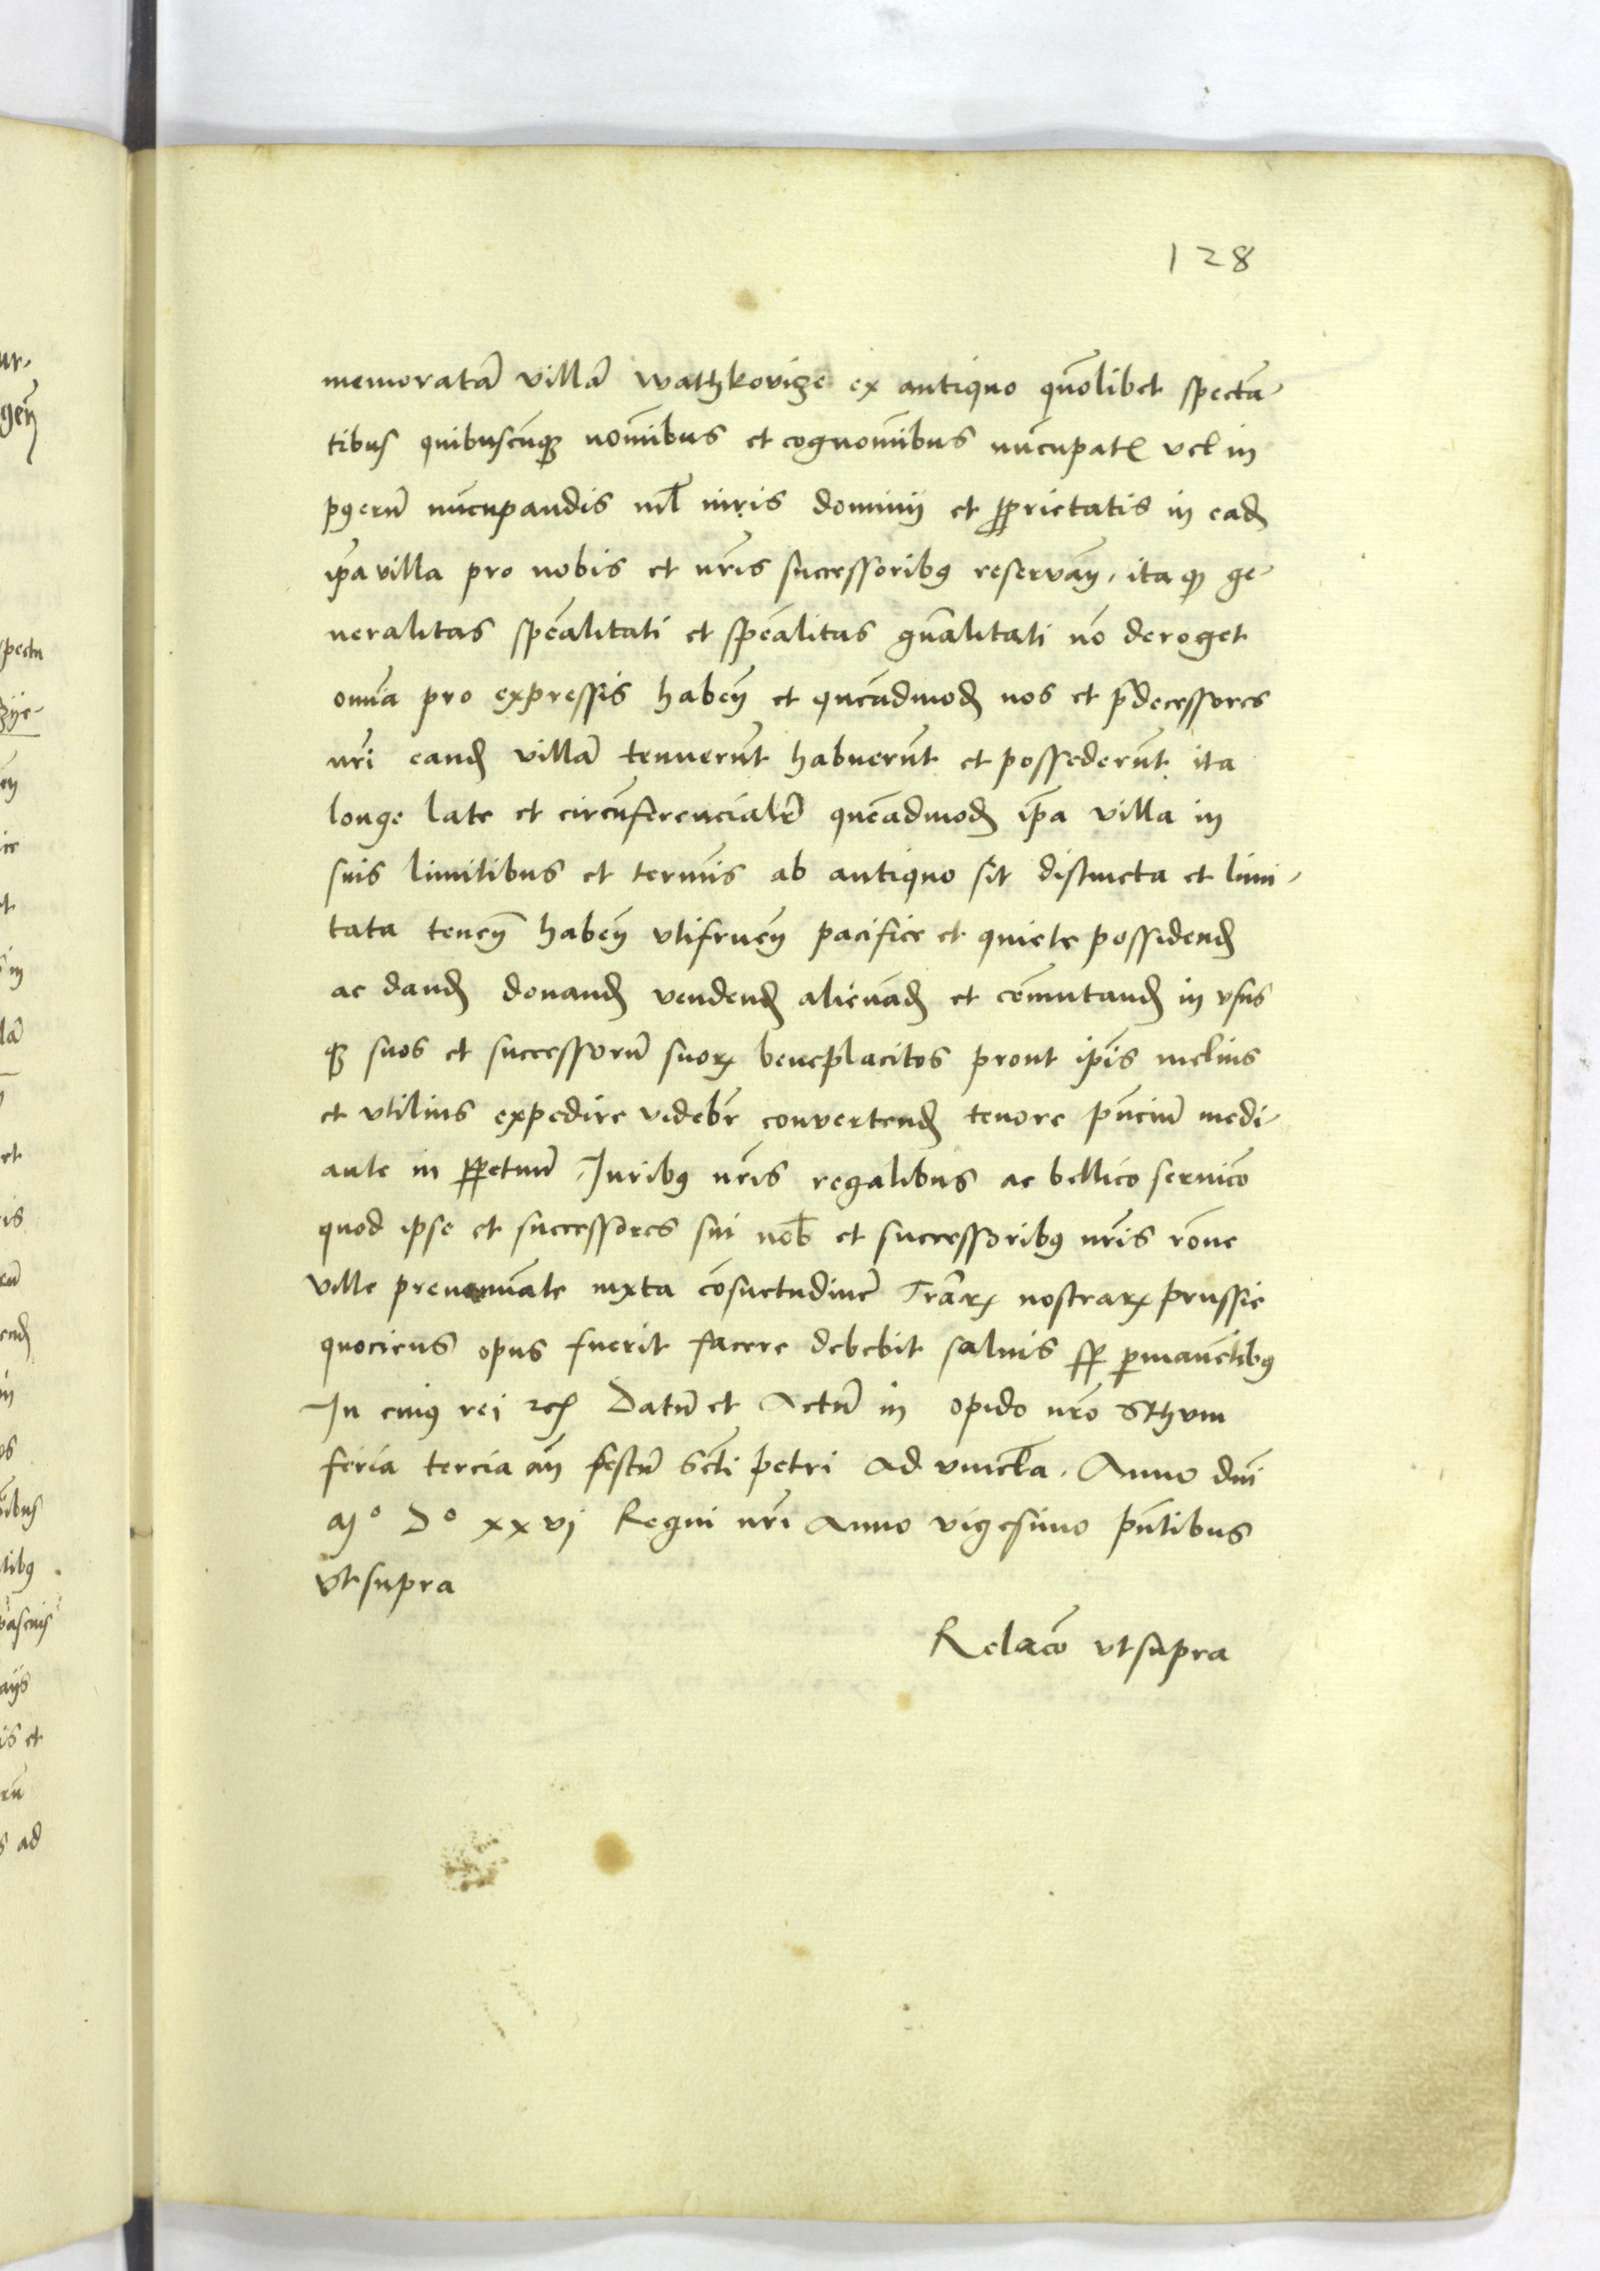 128
memoratā villā Wathkovize ex antiquo quōlibet spectā-
tibus quibuscūqȝ nomībus et cognomībus nūcupatꝭ vel in
pꝯterū nūcupandis nil̄ iuris dominii et ꝓprietatis in eadꝫ
ip̄a villa pro nobis et nr̄is successoribꝯ reserván. ita qȝ ge-
neralitas spēalitati et spēalitas gn̄alitati nō deroget
omīa pro expressis habeń et quēadmodꝫ nos et p̄decessores
nr̄i eandꝫ villā tenuerūt habuerūt et possederūt ita
longe late et circūferencialr̄ quēadmodꝫ ip̄a villa in
suis limitibus et termīs ab antiquo sit distincta et limi-
tata teneń habeń vtifrueń pacifice et quiete possidendꝫ
ac dandꝫ donandꝫ vendendꝫ alienādꝫ et cōmutandꝫ in vsus
qȝ suos et successorū suorꝝ beneplacitos prout ip̄is melius
et vtilius expedire videbr̄ convertendꝫ tenore pn̄ciū medi-
ante in ꝑpetuū. Juribꝯ nr̄is regalibus ac bellico seruicō
quod ipse et successores sui nob̄ et successoribꝯ nr̄is rōne
ville prenoīate iuxta cōsuetudinē Trārꝝ nostrarꝝ prussie
quociens opus fuerit facere debebit saluis sꝑ ꝑmanētibꝯ
In cuiꝯ rei ꝛcꝫ Datū et Actū in opido nr̄o Sthum
feria tercia añ festū Scti petri ad vincl̄a. Anno dnī
Mͦ Dͦ xxvj Regni nr̄i Anno vigesimo pn̄tibus
vt supra
Relacō vt supra